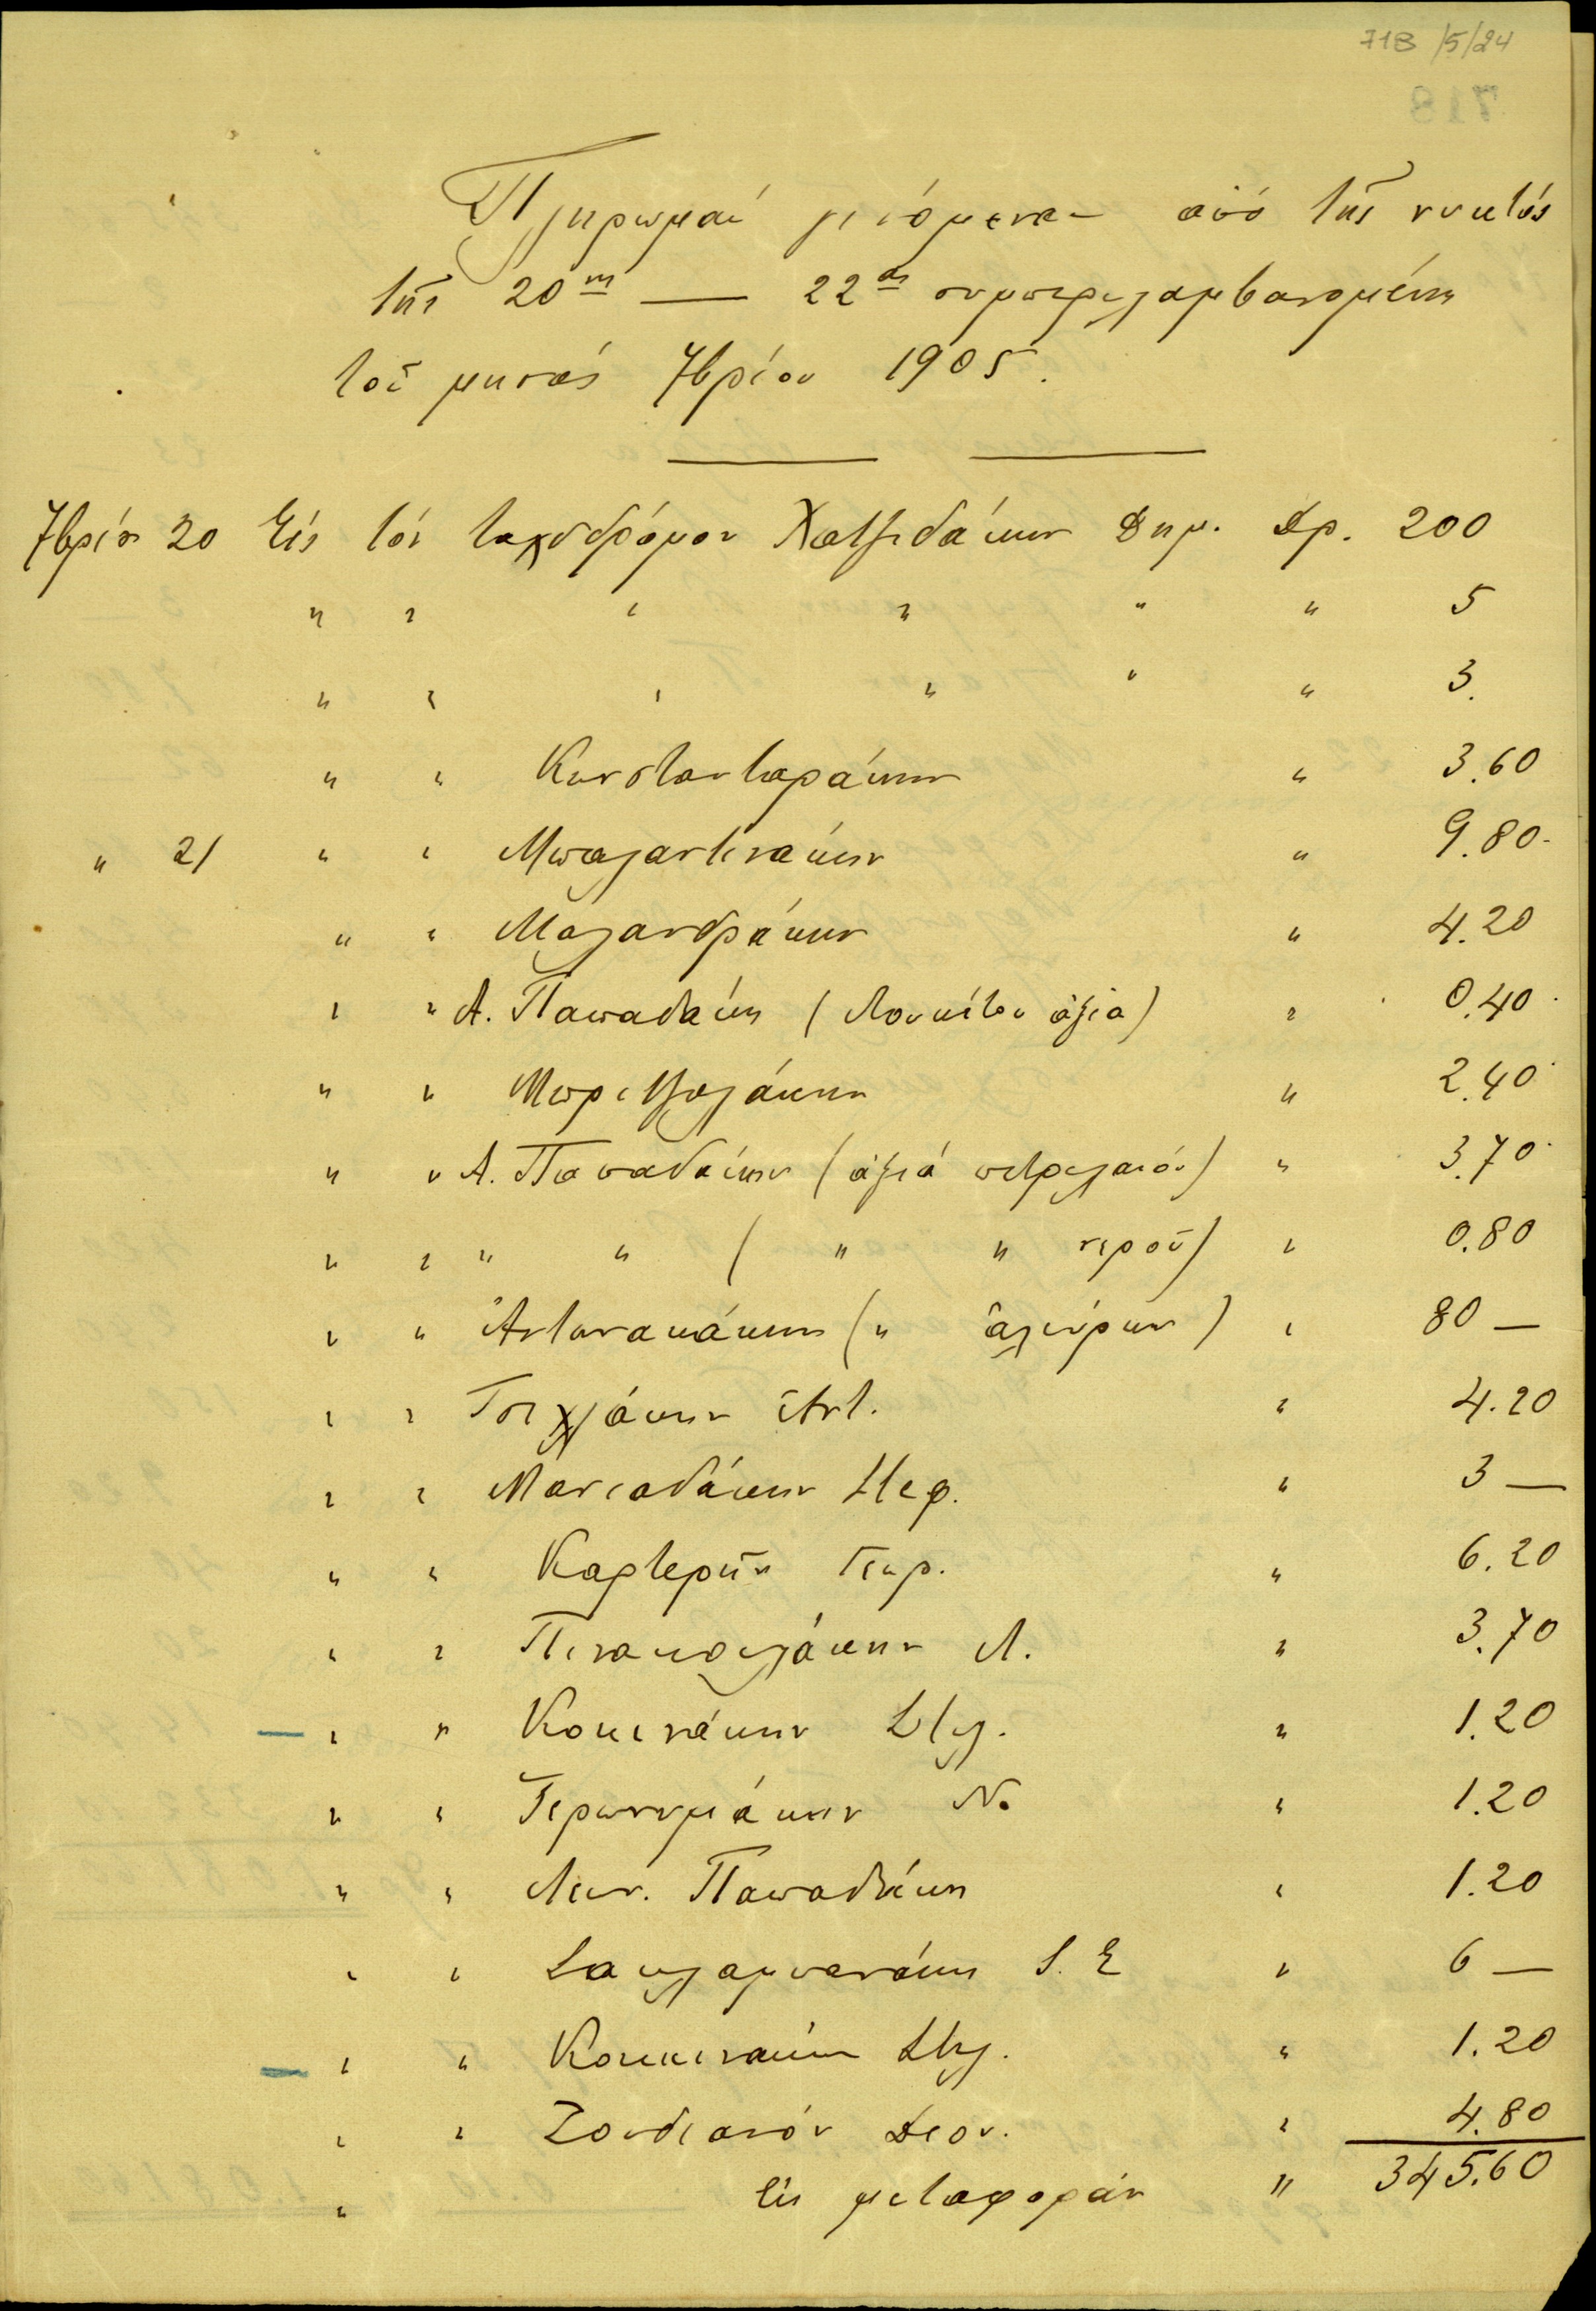 718/5/24
Πληρωμαί γενόμεναι από της νυκτός
της 20ης — 22ας συμπεριλαμβανομένης
τοῦ μηνός 7βρίου 1905.
7βρίου 20 Εἰς τόν ταχυδρόμον Χατζιδάκην Δημ. Δρ. 200
" " " " " " 5
" " " " " " 3.
" " Κωνστανταράκην " 3.60
" 21 " " Μπαλαντινάκην " 9.80
" " Μαλανδράκην " 4.20
" " Α. Παπαδάκη (Λουκέτου ἀξία) " 0.40
" " Μπριτζολάκην " 2.40
" " Α. Παπαδάκην (ἀξιά πετρελαιού) " 3.70
" " " " ( " " νεροῦ) " 0.80
" " Ἀντωνακάκην ( " ἀλεύρων) " 80 —
" " Τσιχλάκην Ἀντ. " 4.20
" " Μανιαδάκην Στεφ. " 3 —
" " Καρτερήν Γεωρ. " 6.20
" " Πενακουλάκην Λ. " 3.70
" " Κοκινάκην Στυλ. " 1.20
" " Γερωνυμάκην Ν. " 1.20
" " Λεων. Παπαδάκη " 1.20
" " Σακλαμπανάκη Σ. Ε " 6 —
" " Κοκκινάκην Στυλ. " 1.20
" " Ζουδιανόν Διον. " 4.80
" Εἰς μεταφοράν " 345.60